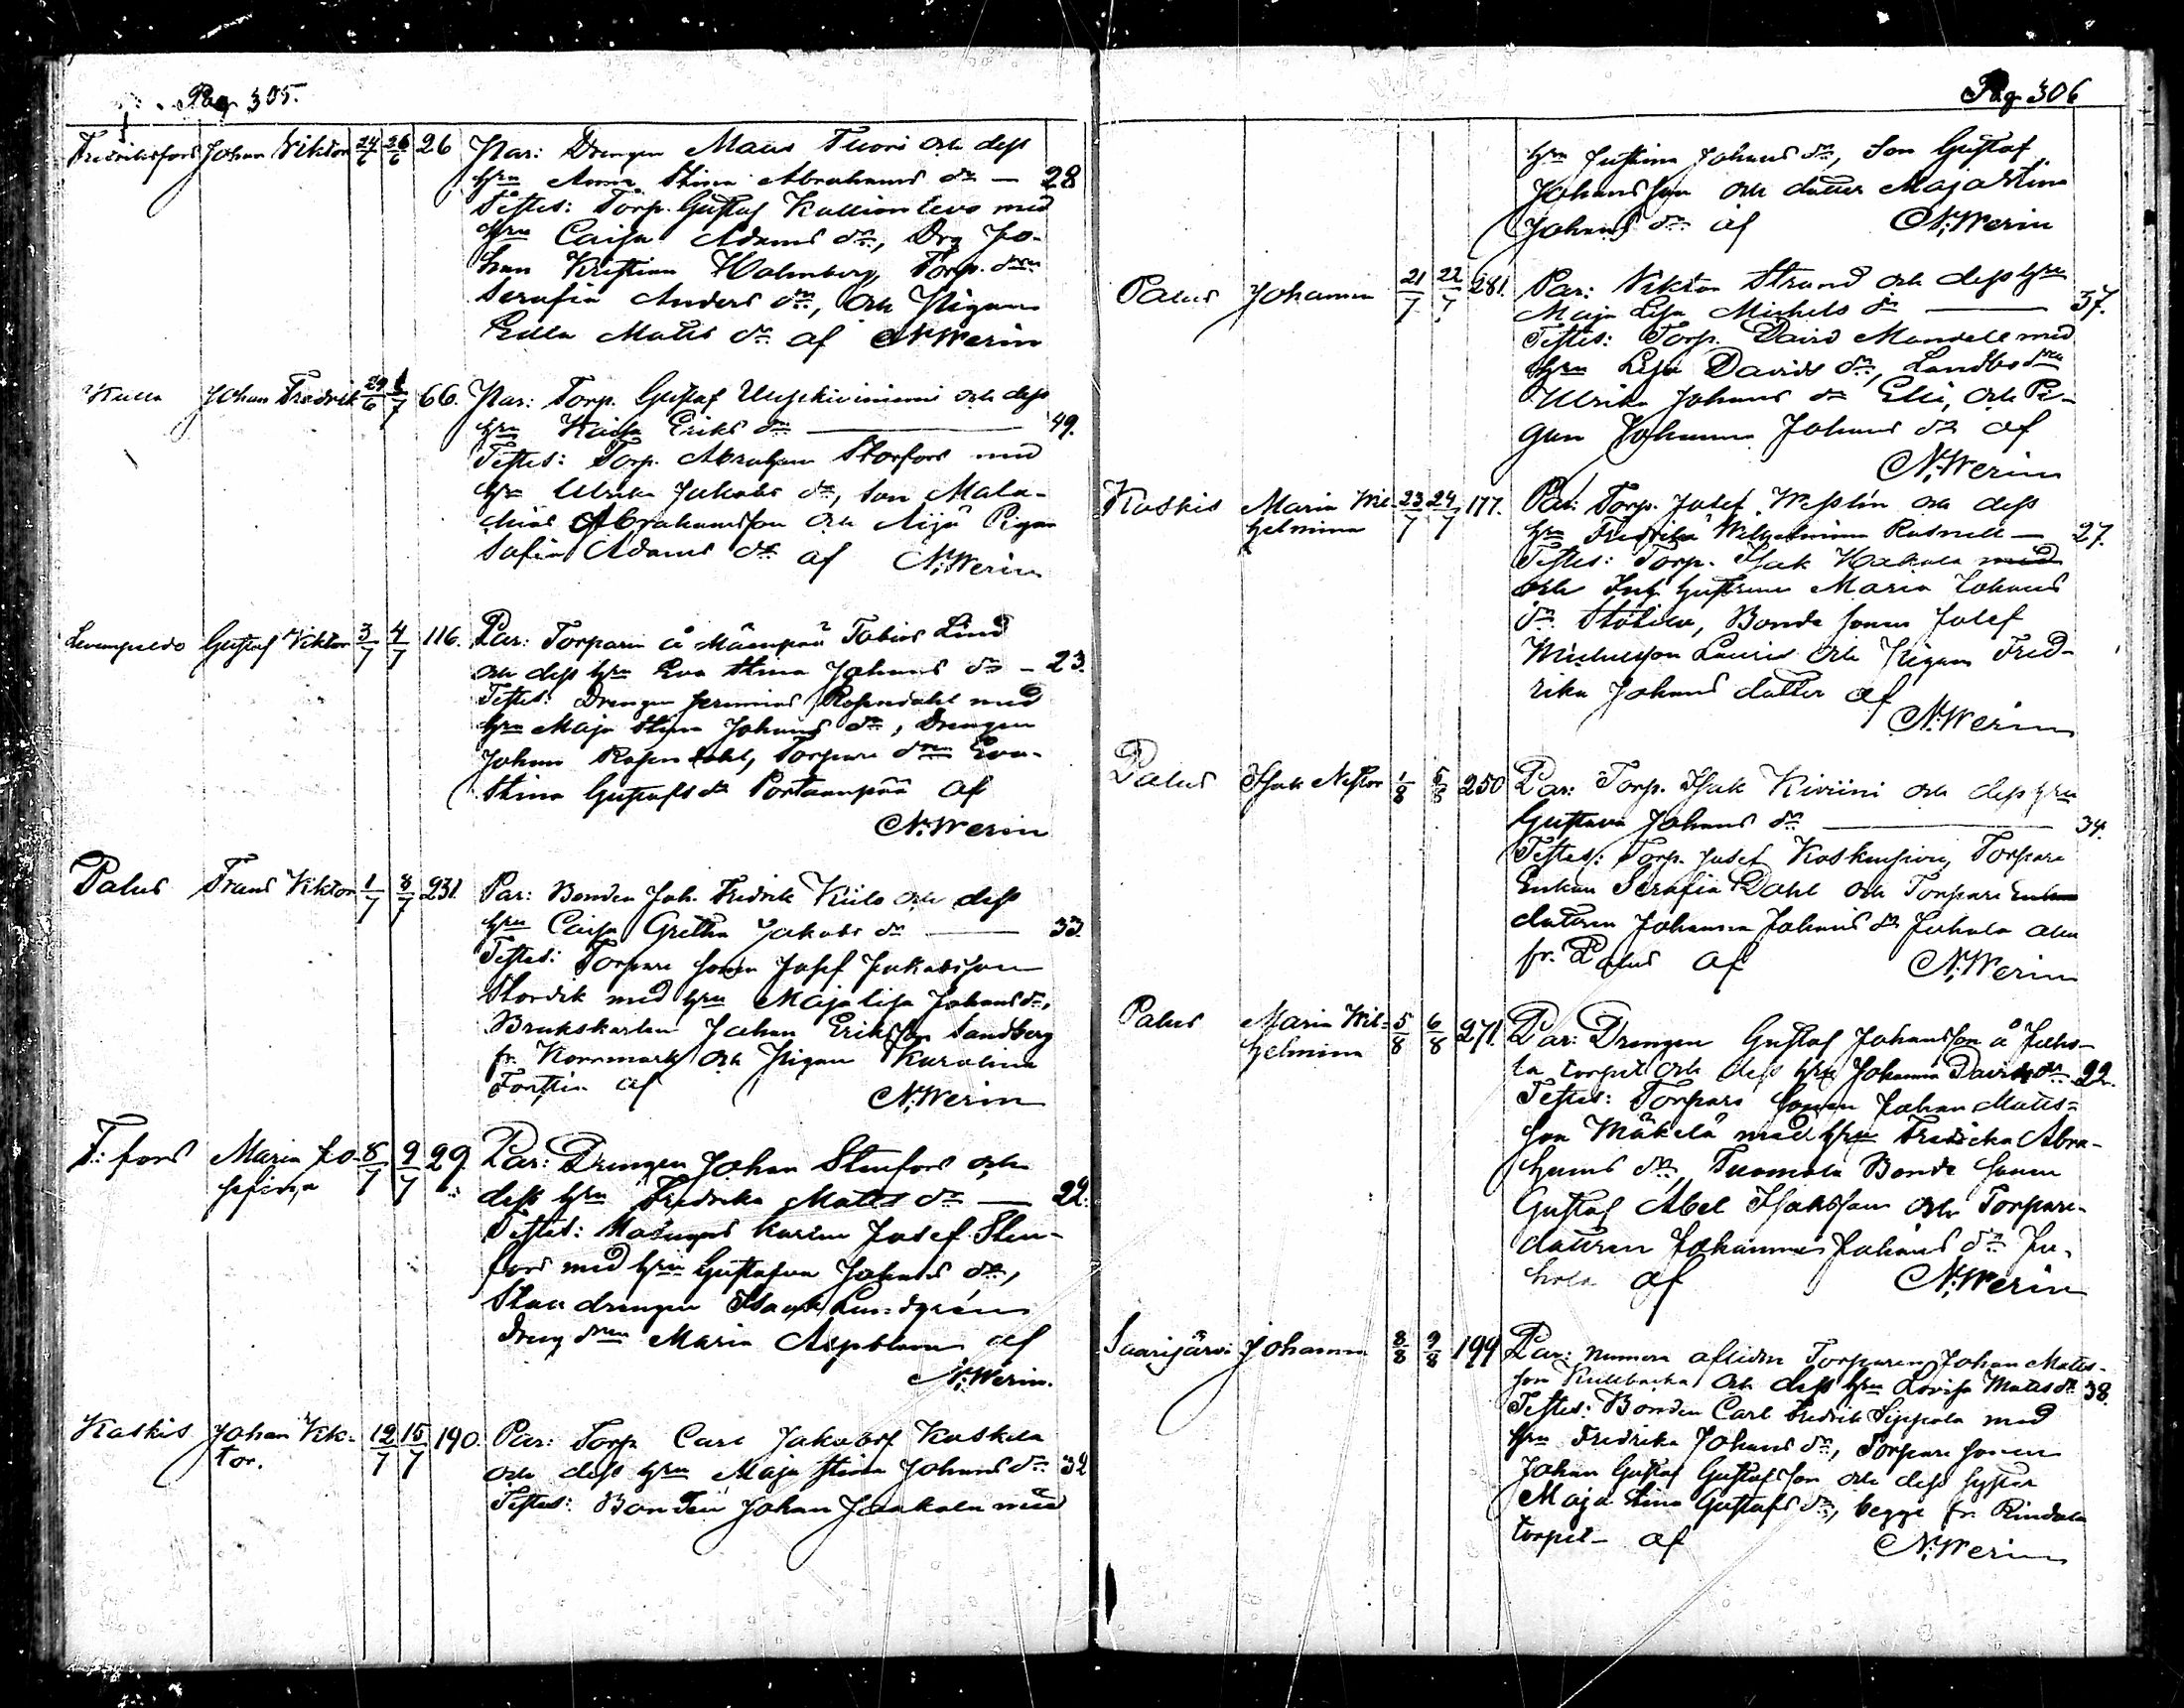 Pag 305.
Fredriksfors Johan Viktor 24/6 26/6 26 Par: Drengen Mats Tuori och dess
hru Anna Stina Abrahams dr — 28
Testes: Torp. Gustaf Kallionlevo med
hru Caisa Adams dr, Drg Jo-
han Kristian Holmberg, Torp. dren
Serafia Anders dr, och Pigan
Edla Matts dr af N. Werin
Kulla Johan Fredrik 29/6 1/7 66. Par: Torp. Gustaf och dess
hru Kaisa Eriks dr — 49.
Testes: Torp. Abraham Storfors med
hru Ulrika Jakobs dr, Son Mala-
kias Abrahamsson och Pigan
Sofia Adams dr af N. Werin
Levanpelto Gustaf Viktor 3/7 4/7 116. Par: Torparen å Mäenpää Tobias Lind
och dess hru Eva Stina Johans dr — 23.
Testes: Drengen Jeremias Rosendahl med
hru Maja Stina Johans dr, Drengen
Johan Rosendahl, Torpare dren Eva-
Stina Gustafs dr Portaanpää af
N. Werin
Palus Frans Viktor 1/7 8/7 231. Par: Bonden Joh. Fredrik Kiilo och dess
hru Caisa Gretha Jakobs dr — 33.
Testes: Torpare sonen Josef Jakobsson
Stordik med hru Maja Lisa Johans dr,
Brukskarlen Johan Eriksson Sandberg
fr. Norrmark och Pigan Karolina
af N. Werin
F:fors Maria Jo- 8/7 9/7 29. Par: Drengen Johan Stenfors och
sefina dess hru Fredrika Matts dr — 24.
Testes: Masugns karlen Josef Sten-
fors med hru Gustafva Johans dr,
drengen Isaak Lundgrén
Dreng dren Maria Aspblom af
N. Werin.
Kaskis Johan Vik- 12/7 15/7 190. Par: Torp. Carl Jakobss Koskela
tor. och dess hru Maja Stina Johans dr 32
Testes: Bonden Johan Jaakola med
Pag 306
hru Justina Johans dr, Son Gustaf
Johansson och dotter Maja Stina
Johans dr af N. Werin
Palus Johanna 21/7 22/7 281. Par: Viktor Strand och dess hru
Maja Lisa Michels dr — 37.
Testes: Torp. David Mandell med
hru Lisa Davids dr, Landbo dren
Ulrika Johans dr Elii, och Pi-
gan Johanna Johans dr af
N. Werin
Kaskis Maria Wil- 23/7 24/7 177. Par: Torp. Josef Wesslin och dess
helmina hru Fredrika Wilhelmina Rosnell — 27.
Testes: Torp. Isak Kakola med
och Inh. hustrun Maria Johans
dr, Bonde sonen Josef
Michelsson Lauri och Pigan Fred-
rika Johans dotter af
N. Werin
Palus Isak Nestor 1/8 5/8 250 Par: Torp. Isak Kiviini och dess hru
Gustava Johans dr — 34.
Testes: Torp. Josef Koskenpivi, Torpare
Enkan Serafia Dahl och Torpare Enkan
dottren Johanna Johans dr Juhola alla
fr. Palus af N. Werin
Palus Maria Wil- 5/8 6/8 271. Par: Drengen Gustaf Johansson å Juho-
helmina la torpet och dess hru Johanna Davids dr 22.
Testes: Torpare sonen Johan Matts-
son Mäkelä med hru Fredrika Abra-
hams dr, Tuomola Bonde sonen
Gustaf Abel Isaksson och Torpare-
dottren Johanna Johans dr Ju-
hola af N. Werin
Saarijärvi Johanna 8/8 9/8 199 Par: numera aflidne Torparen Johan Matts-
son Kullbacka och dess hru Lovisa Matts dr 38.
Testes: Bonden Carl Fredrik Sippola med
hru Fredrika Johans dr, Torpare sonen
Johan Gustaf Gustafsson och dess syster
Maja Stina Gustafs dr, begge fr. Rindala
torpet — af N. Werin